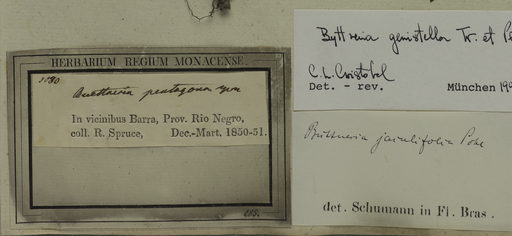 HERBARIUM REGIUM MONACENSE.
1580
Buettneria pentagona
In vicinibus Barra, Prov. Rio Negro,
coll. R. Spruce, Dec.-Mart. 1850-51.
Byttneria genistella Tr. et Pl
C.L. Cristobal
Det. - rev. München 199
Büttneria jaculifolia Pohl
det. Schumann in Fl. Bras.